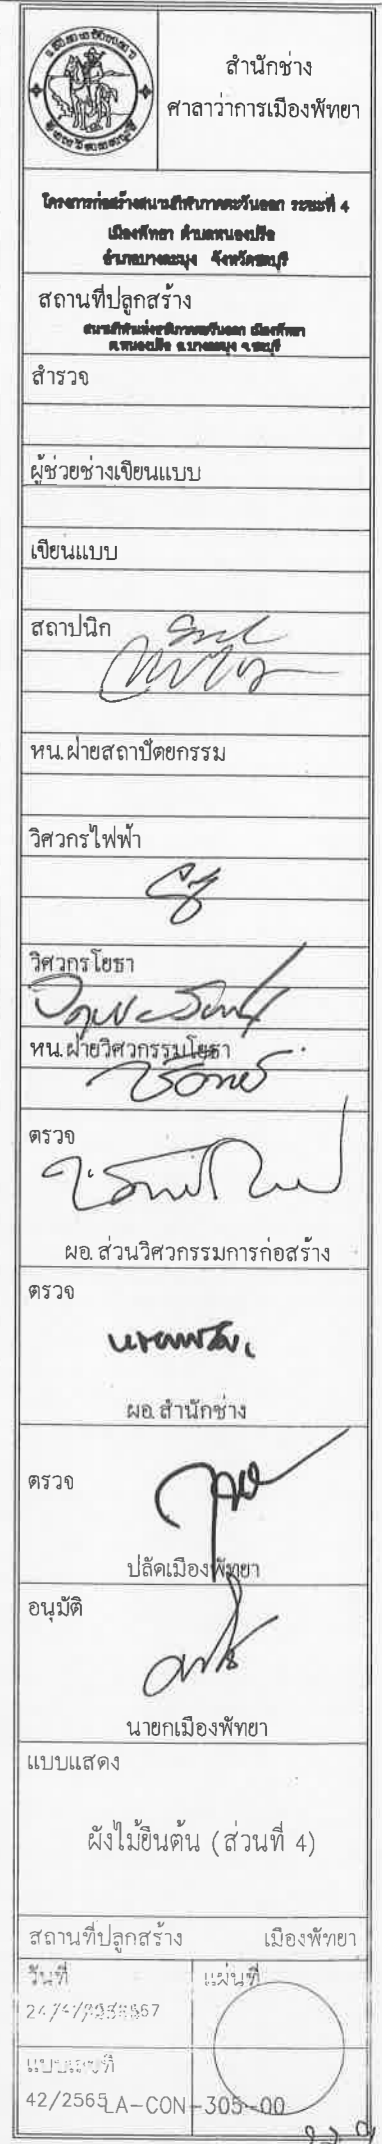 สำนักช่าง
ศาลาว่าการเมืองพัทยา
โครงการก่อสร้างสนามกีฬาภาคตะวันออก ระยะที่ 4
เมืองพัทยา ตำบลหนองปรือ
อำเภอบางละมุง จังหวัดชลบุรี
สถานที่ปลูกสร้าง
สนามกีฬาแห่งชาติภาคตะวันออก เมืองพัทยา
ต.หนองปรือ อ.บางละมุง จ.ชลบุรี
สำรวจ
ผู้ช่วยช่างเขียนแบบ
เขียนแบบ
สถาปนิก
หน.ฝ่ายสถาปัตยกรรม
วิศวกรไฟฟ้า
วิศวกรโยธา
หน.ฝ่ายวิศวกรรมโยธา
ตรวจ
ผอ.ส่วนวิศวกรรมการก่อสร้าง
ตรวจ
ผอ.สำนักช่าง
ตรวจ
ปลัดเมืองพัทยา
อนุมัติ
นายกเมืองพัทยา
แบบแสดง
ผังไม้ยืนต้น (ส่วนที่ 4)
สถานที่ปลูกสร้าง เมืองพัทยา
วันที่ แผ่นที่
แบบเลขที่
42/2565 LA-CON-305-00